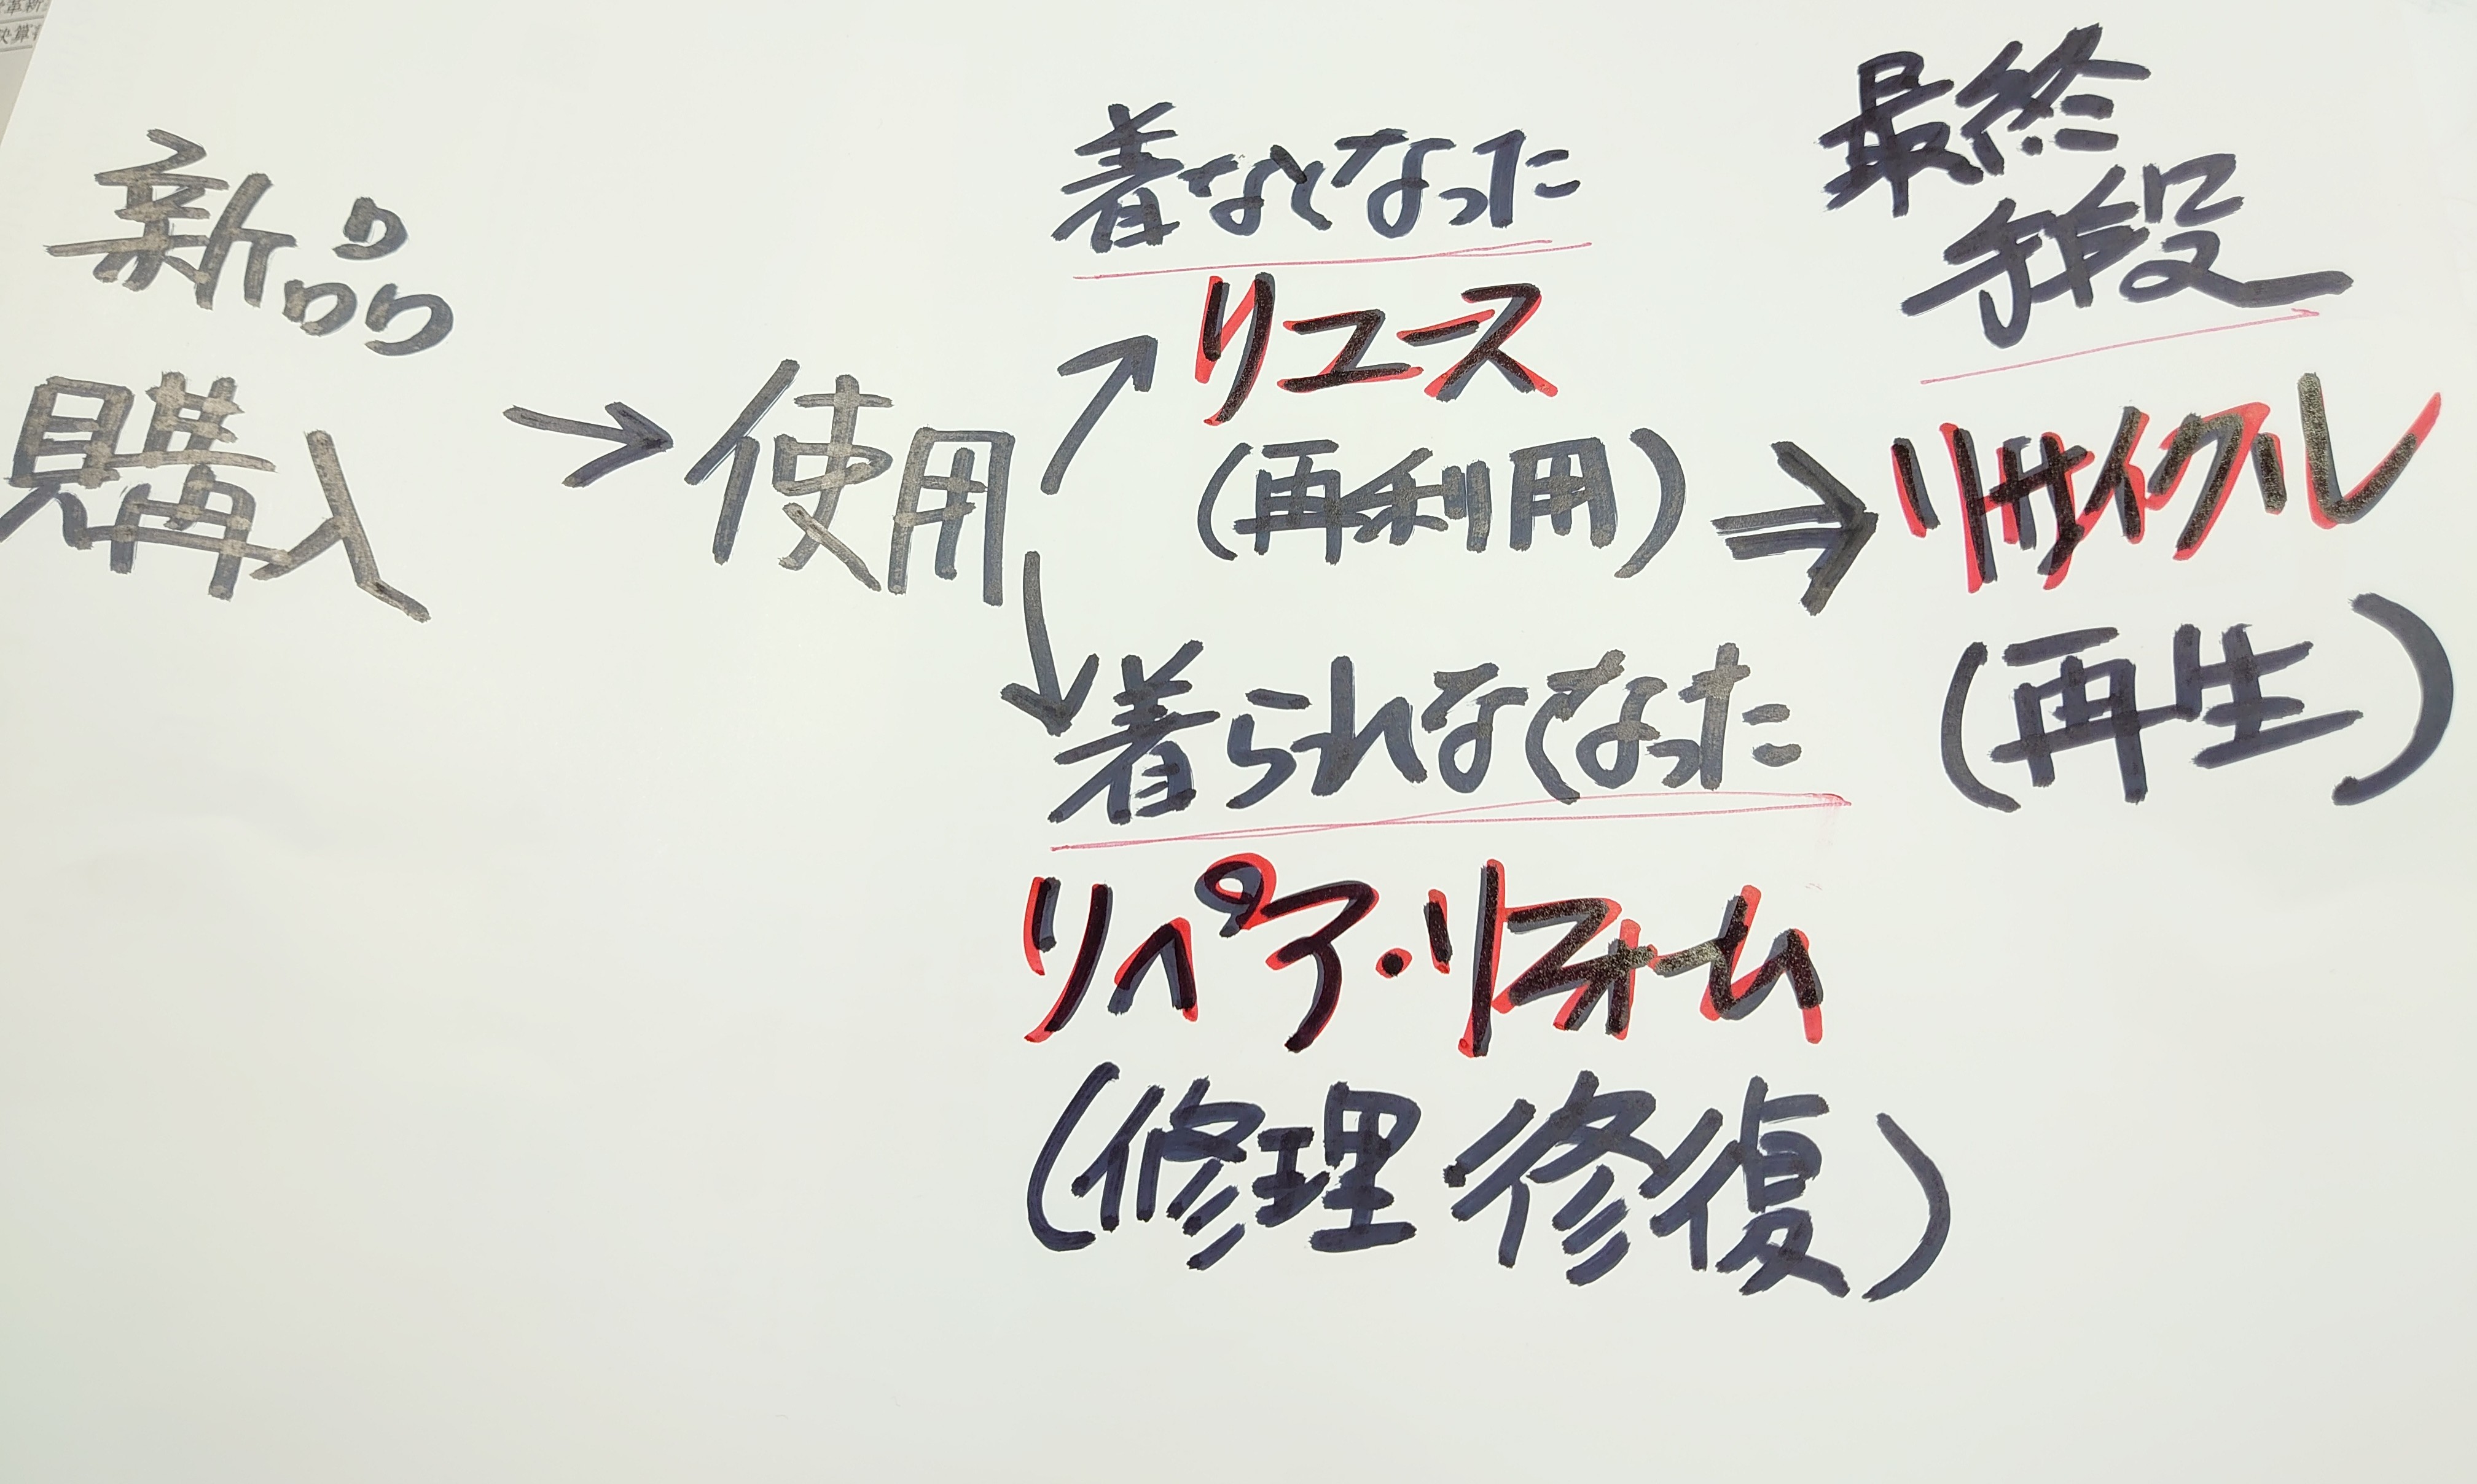 新品
購入
→使用
着なくなった
リユース
(再利用)
着られなくなった
リペア・リフォーム
(修理・修復)
⇒
最終
手段
リサイクル
(再生)